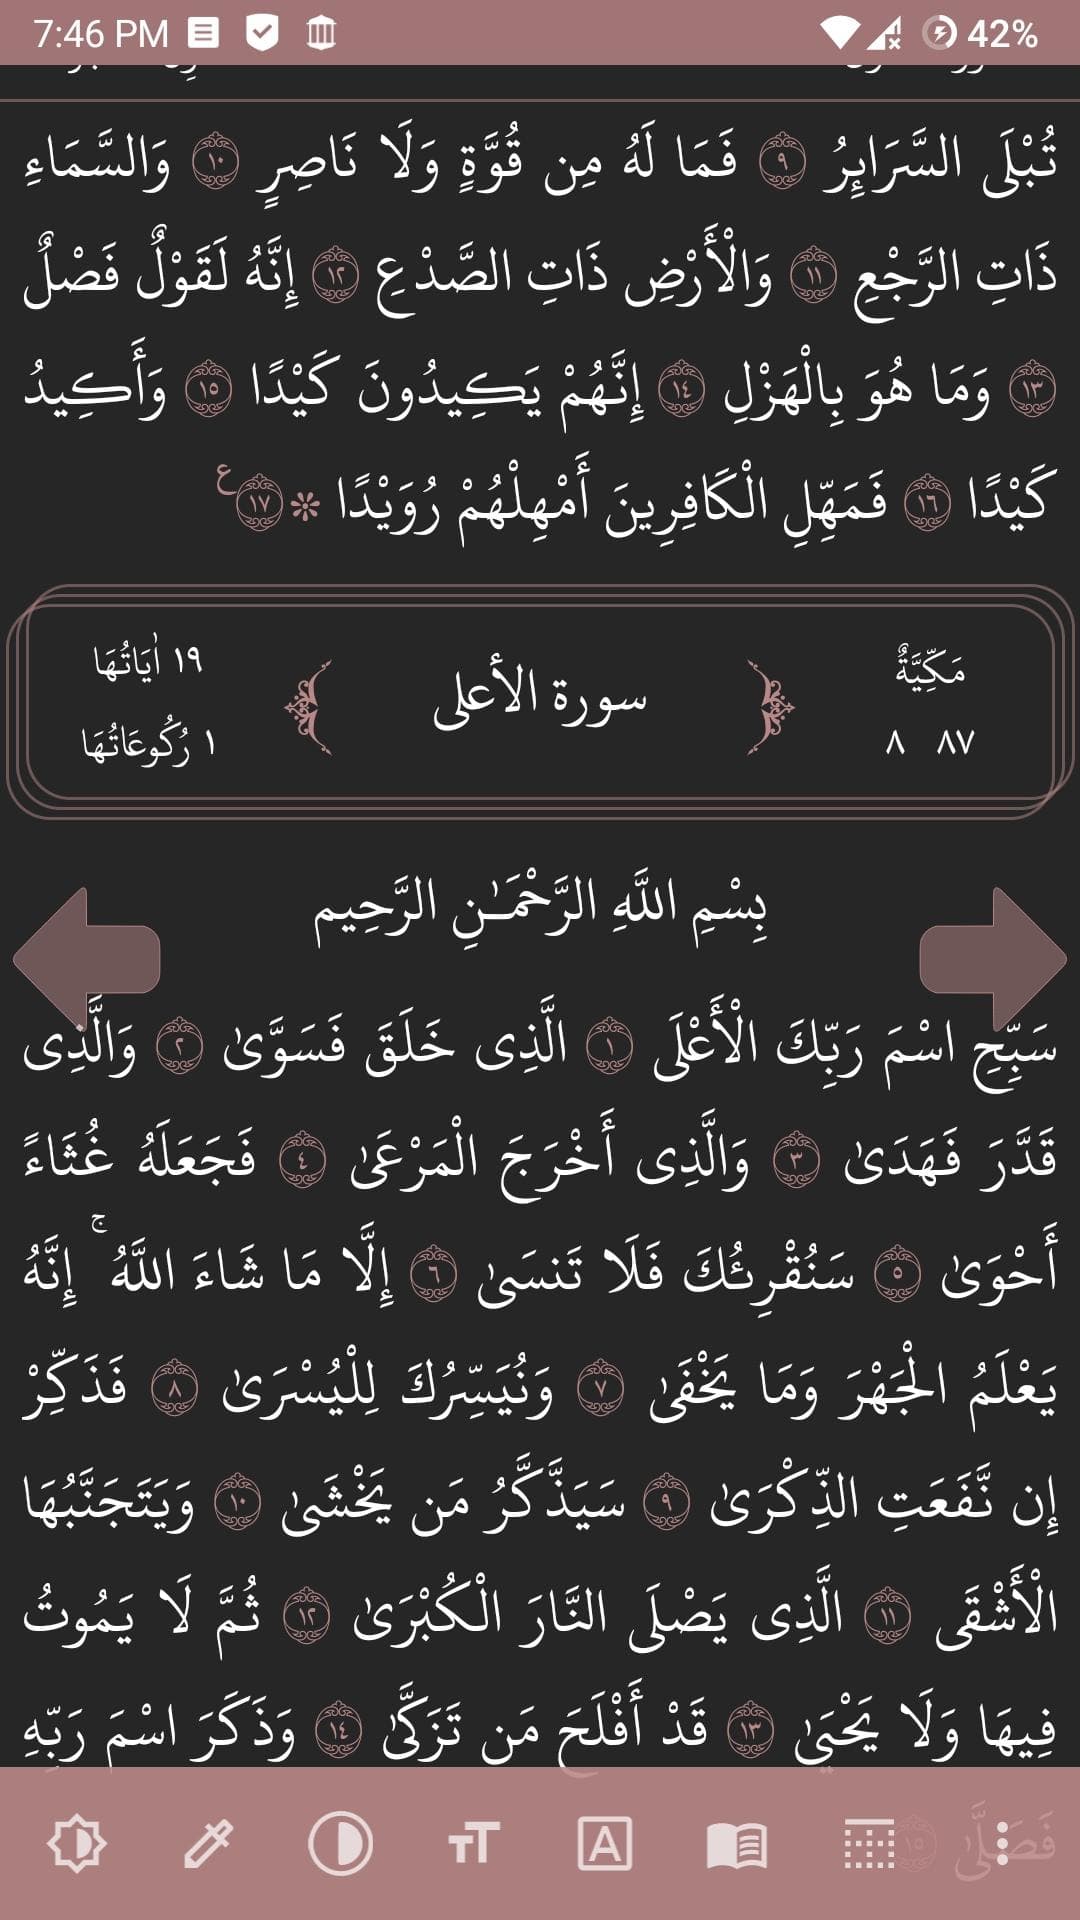 7:46 PM 42%
تُبْلَى السَّرَايِرُ ٩ فَمَا لَهُ مِن قُوَّةٍ وَلَا نَاصِرٍ ١٠ وَالسَّمَاءِ
ذَاتِ الرَّجْعِ ١١ وَالْأَرْضِ ذَاتِ الصَّدْعِ ١٢ إِنَّهُ لَقَوْلٌ فَصْلٌ
١٣ وَمَا هُوَ بِالْهَزْلِ ١٤ إِنَّهُمْ يَكِيدُونَ كَيْدًا ١٥ وَأَكِيدُ
كَيْدًا ١٦ فَمَهِّلِ الْكَافِرِينَ أَمْهِلْهُمْ رُوَيْدًا ١٧ ع
مَكِّيَّةٌ سورة الأعلى ١٩ اٰيَاتُهَا
٨٧ ٨ ١ رُكُوعَاتُهَا
بِسْمِ اللَّهِ الرَّحْمَـٰنِ الرَّحِيم
سَبِّحِ اسْمَ رَبِّكَ الْأَعْلَى ١ الَّذِى خَلَقَ فَسَوَّىٰ ٢ وَالَّذِى
قَدَّرَ فَهَدَىٰ ٣ وَالَّذِى أَخْرَجَ الْمَرْعَىٰ ٤ فَجَعَلَهُ غُثَاءً
أَحْوَىٰ ٥ سَنُقْرِئُكَ فَلَا تَنسَىٰ ٦ إِلَّا مَا شَاءَ اللَّهُ ۚ إِنَّهُ
يَعْلَمُ الْجَهْرَ وَمَا يَخْفَىٰ ٧ وَنُيَسِّرُكَ لِلْيُسْرَىٰ ٨ فَذَكِّرْ
إِن نَّفَعَتِ الذِّكْرَىٰ ٩ سَيَذَّكَّرُ مَن يَخْشَىٰ ١٠ وَيَتَجَنَّبُهَا
الْأَشْقَى ١١ الَّذِى يَصْلَى النَّارَ الْكُبْرَىٰ ١٢ ثُمَّ لَا يَمُوتُ
فِيهَا وَلَا يَحْيَىٰ ١٣ قَدْ أَفْلَحَ مَن تَزَكَّىٰ ١٤ وَذَكَرَ اسْمَ رَبِّهِ
فَصَلَّىٰ ١٥